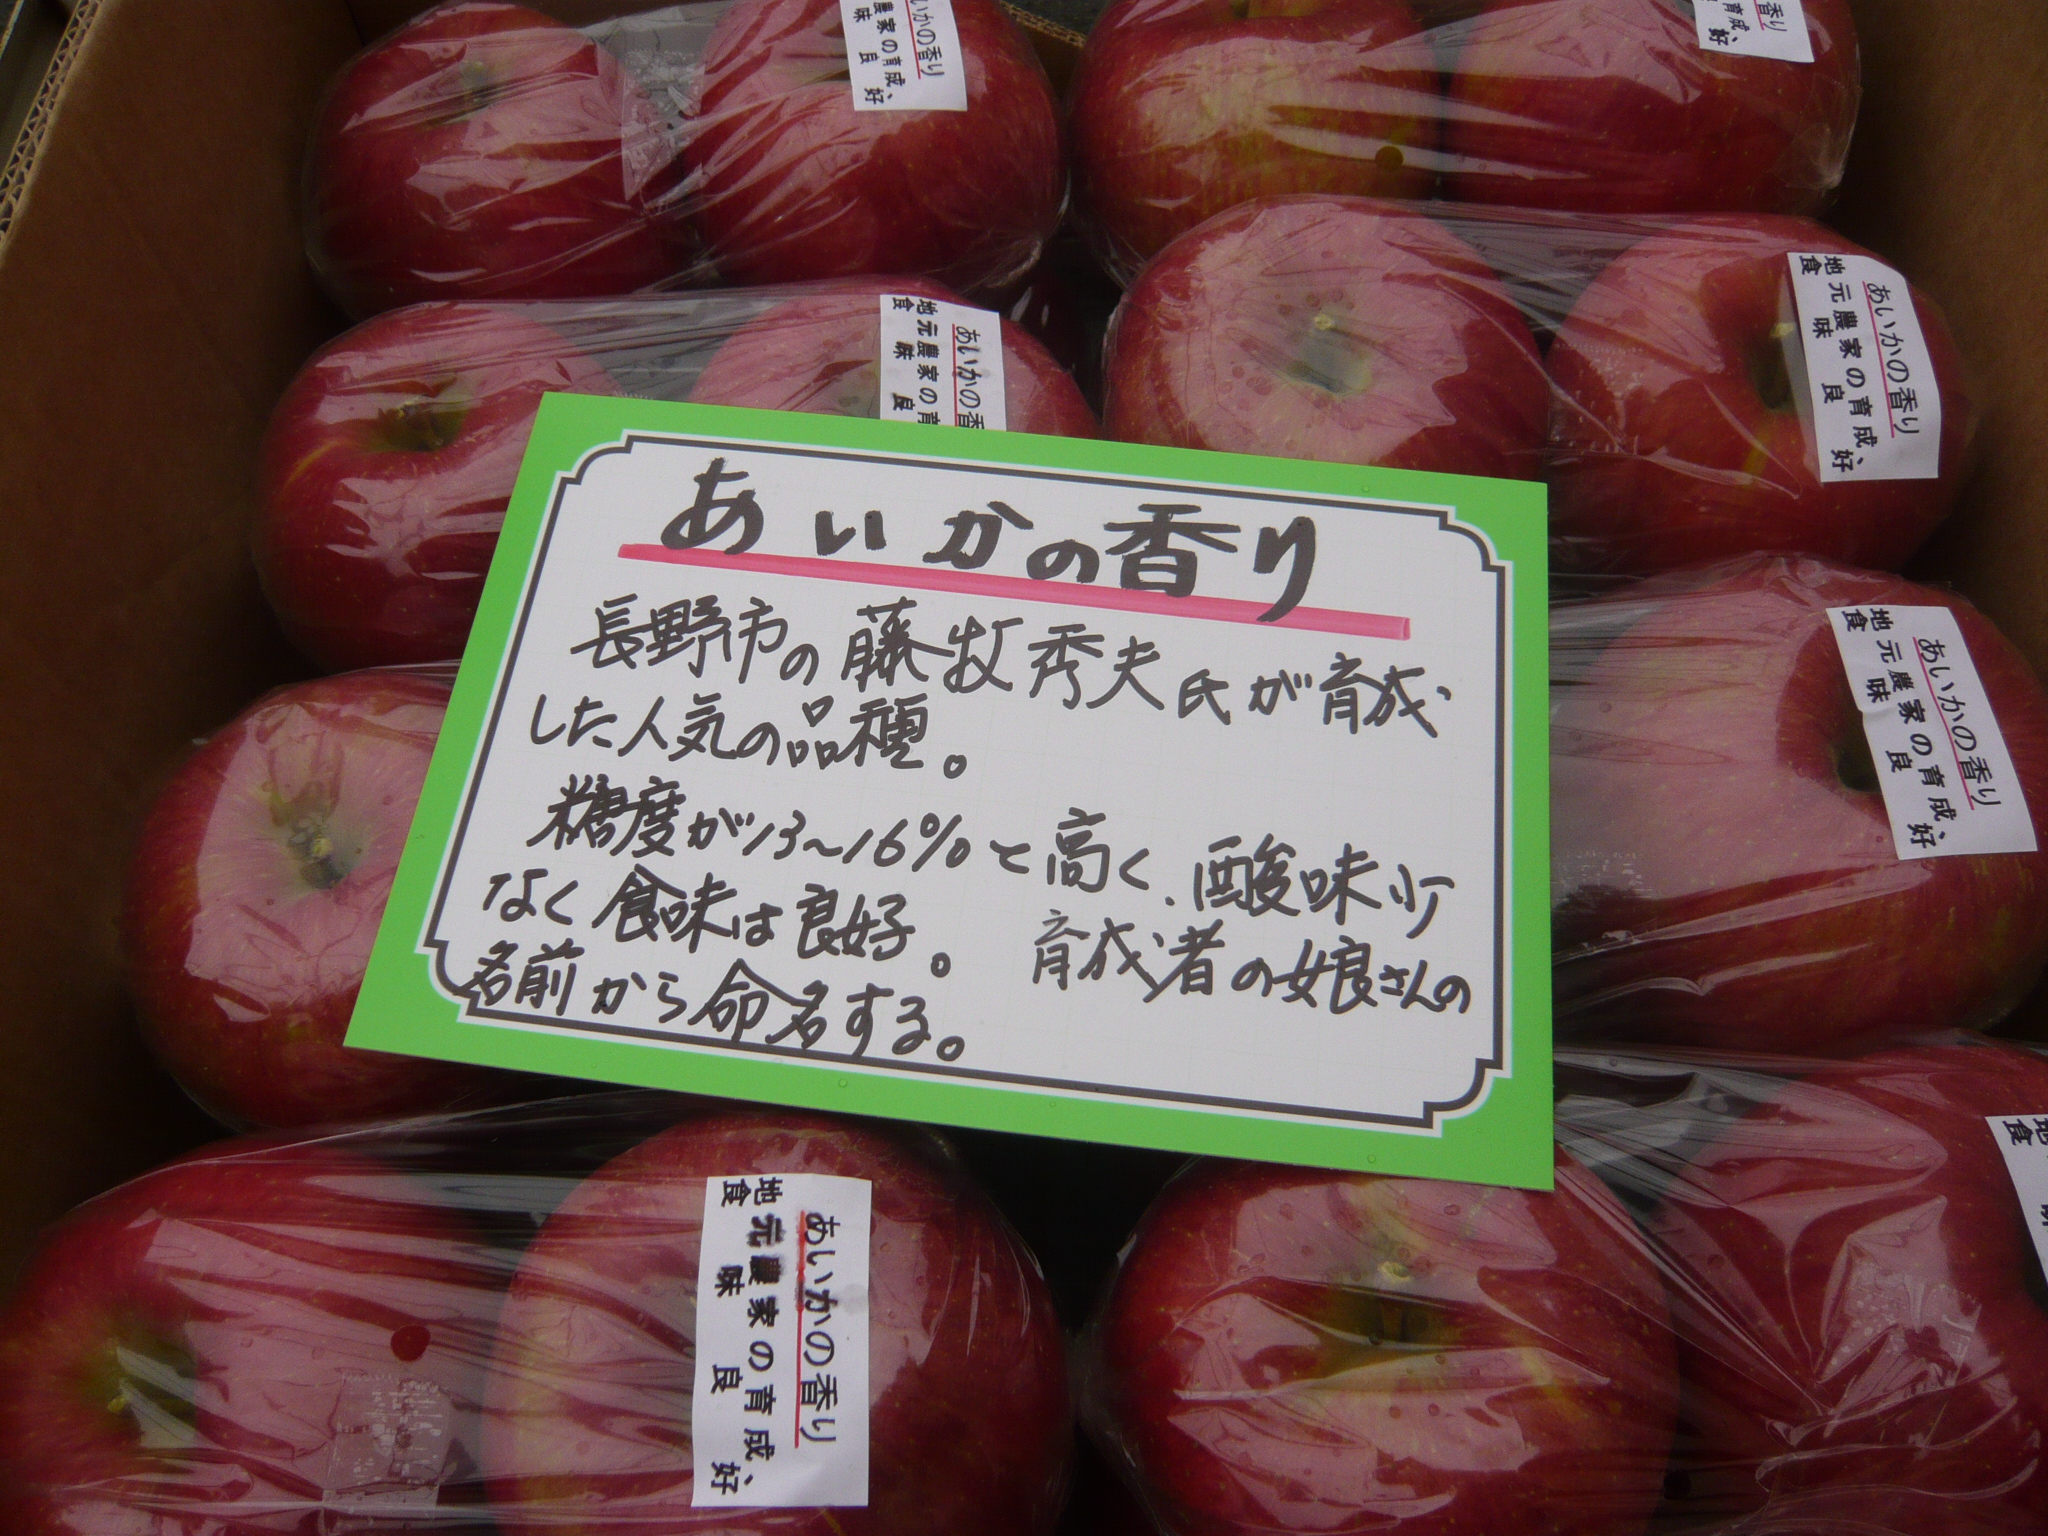 あいかの香り
長野市の藤牧秀夫氏が育成
した人気の品種。
糖度が13~16%と高く、酸味少
なく食味は良好。 育成者の娘さんの
名前から命名する。
いかの香り
農家の育成、
味良好
香り
育成、
好
あいかの香
地元農家の育
食味良
あいかの香り
地元農家の育成、
食味良好
あいかの香り
地元農家の育成、
食味良好
あいかの香り
地元農家の育成、
食味良好
地
食